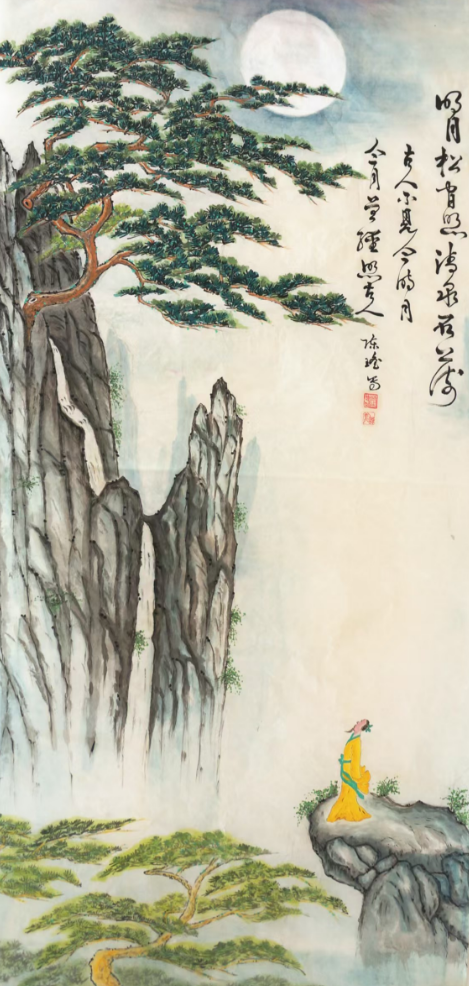 明月松間照清泉石上流
古人不見今時月
今月曾經照古人